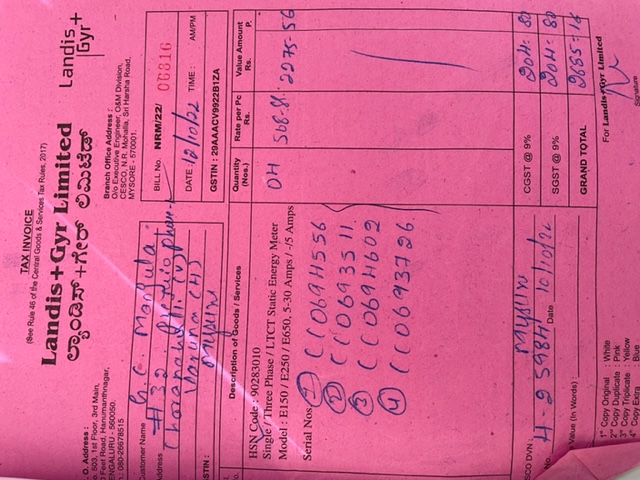 TAX INVOICE
(See Rule 46 of the Central Goods & Services Tax Rules, 2017)
Landis+Gyr Limited
ಲ್ಯಾಂಡಿಸ್+ಗೇರ್ ಲಿಮಿಟೆಡ್
Landis
Gyr+
O. Address :
603, 1st Floor, 3rd Main,
Feet Road, Hanumanthnagar,
ENGALURU - 560050.
: 080-26678515
Branch Office Address :
O/o Executive Engineer, O&M Division,
CESCO, N.R. Mohalla, Sri Harsha Road,
MYSORE - 570001.
Customer Name
Address
# 32
Varuna (H)
Mysuru
GSTIN :
BILL No. NRM/22/ 06816
DATE : 12/10/22 TIME : AM/PM
GSTIN : 29AAACV9922B1ZA
Description of Goods / Services
Quantity (Nos.)
Rate per Pc Rs.
Value Amount Rs. P.
HSN Code : 90283010
Single / Three Phase / LTCT Static Energy Meter
Model : E150 / E250 / E650, 5-30 Amps / -/5 Amps
04 568-81 2275-56
Serial Nos.
1 CC0694556
2 CC0693511
3 CC0694602
4 CC0693726
CESCO DVN : Mysuru
No. H-259841 Date 10/10/22
Value (In Words) :
CGST @ 9% 204-80
SGST @ 9% 204-80
GRAND TOTAL 2685-16
1st Copy Original : White
2nd Copy Duplicate : Pink
3rd Copy Triplicate : Yellow
4th Copy Extra : Blue
For Landis+Gyr Limited
Signature